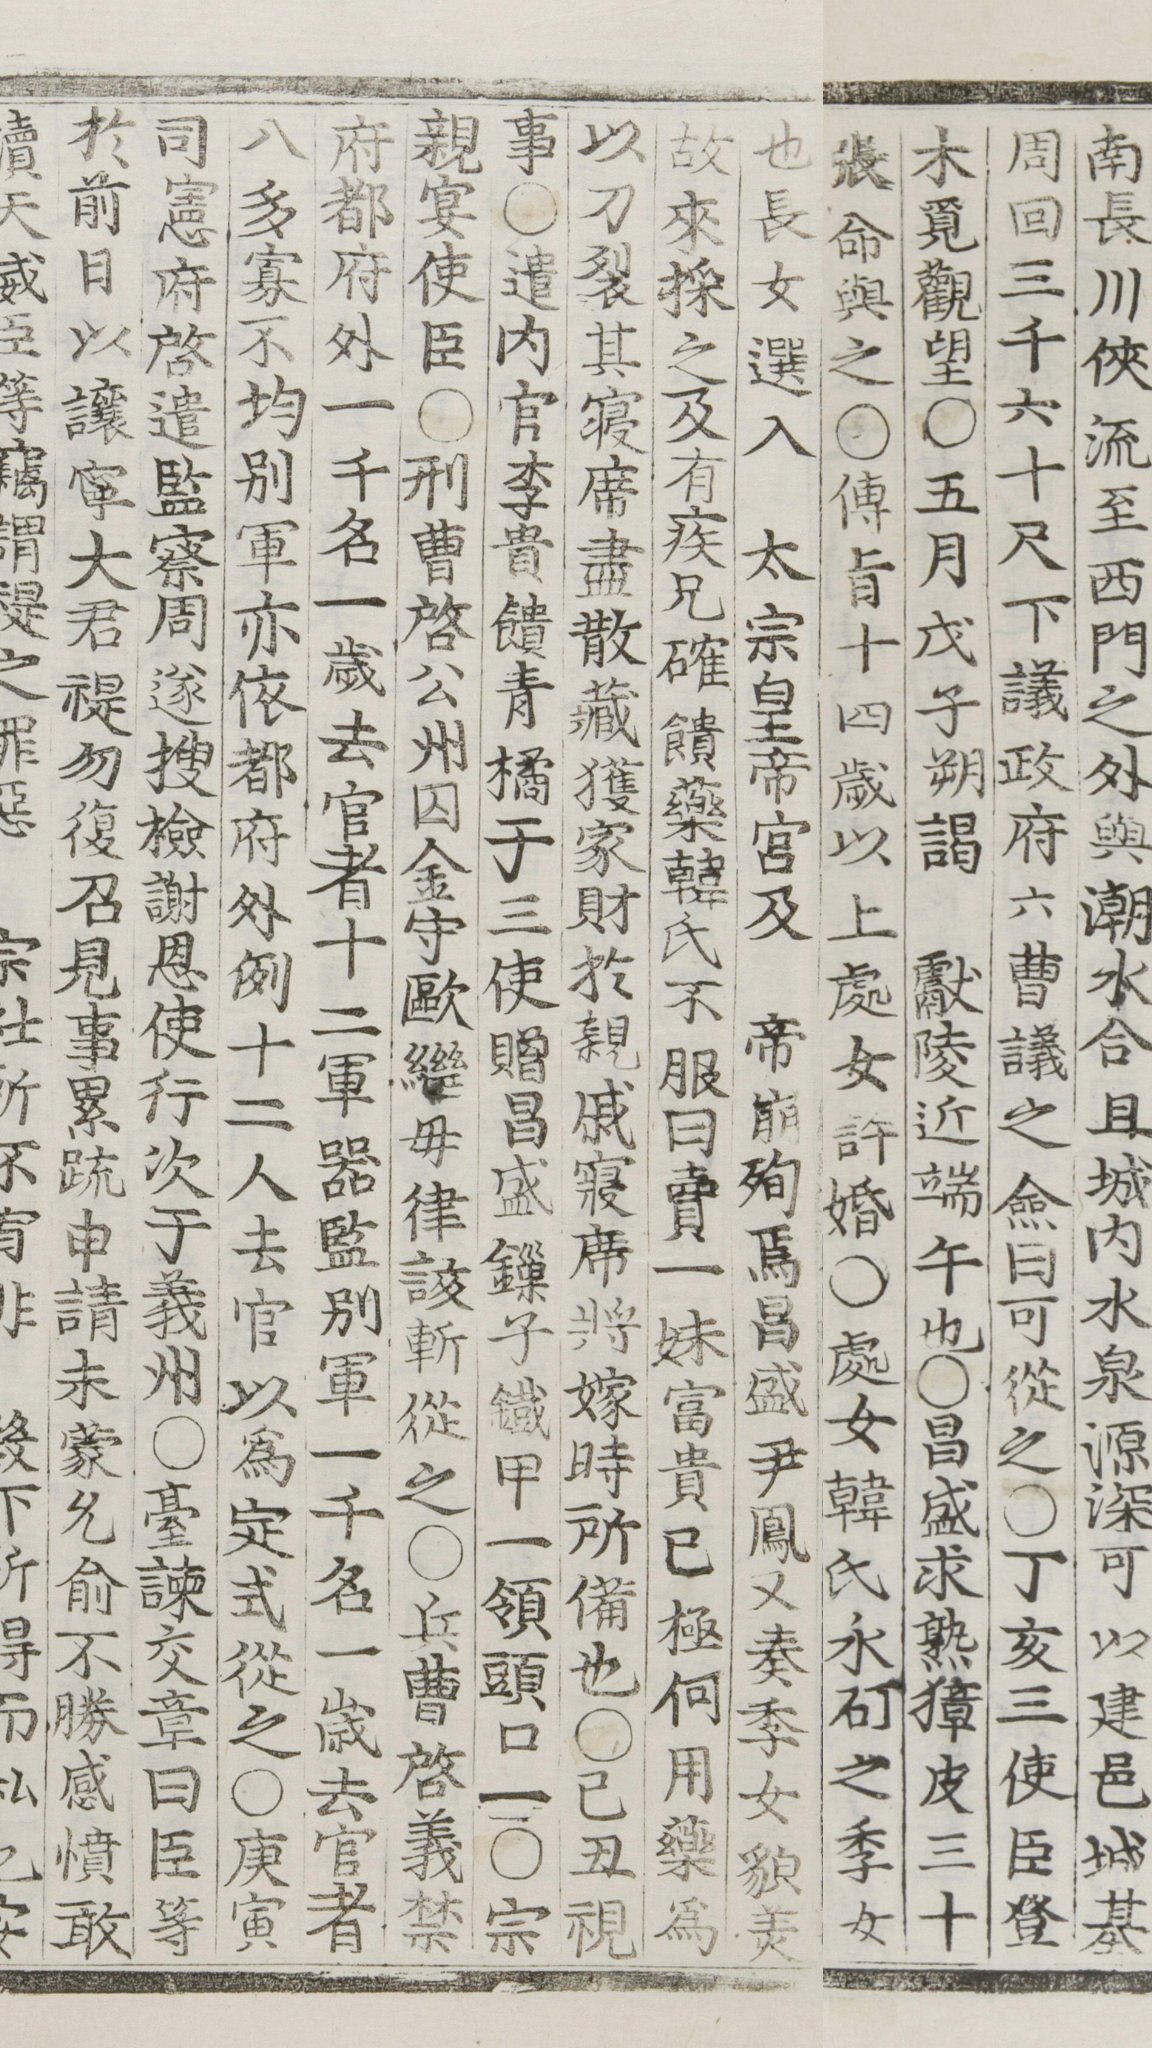 南長川俠流至西門之外與潮水合且城內水泉源深可以建邑城基
周回三千六十尺下議政府六曹議之僉曰可從之○丁亥三使臣登
木覓觀望○五月戊子朔謁 獻陵近端午也○昌盛求熟獐皮三十
張命與之○傳旨十四歲以上處女許婚○處女韓氏永矴之季女
也長女選入 太宗皇帝宮及 帝崩殉焉昌盛尹鳳又奏季女貌美
故來採之及有疾兄確饋藥韓氏不服曰賣一妹富貴已極何用藥爲
以刀裂其寢席盡散藏獲家財於親戚寢席將嫁時所備也○己丑視
事○遣內官李貴饋靑橘于三使贈昌盛鏁子鐵甲一領頭口一○宗
親宴使臣○刑曹啓公州囚金守歐繼母律該斬從之○兵曹啓義禁
府都府外一千名一歲去官者十二軍器監別軍一千名一歲去官者
八多寡不均別軍亦依都府外例十二人去官以爲定式從之○庚寅
司憲府啓遣監察周遂搜檢謝恩使行次于義州○臺諫交章曰臣等
於前日以讓寧大君禔勿復召見事累疏申請未蒙允兪不勝感憤敢
瀆天威臣等竊謂禔之罪惡 宗社所不宥非 殿下所得而私也安